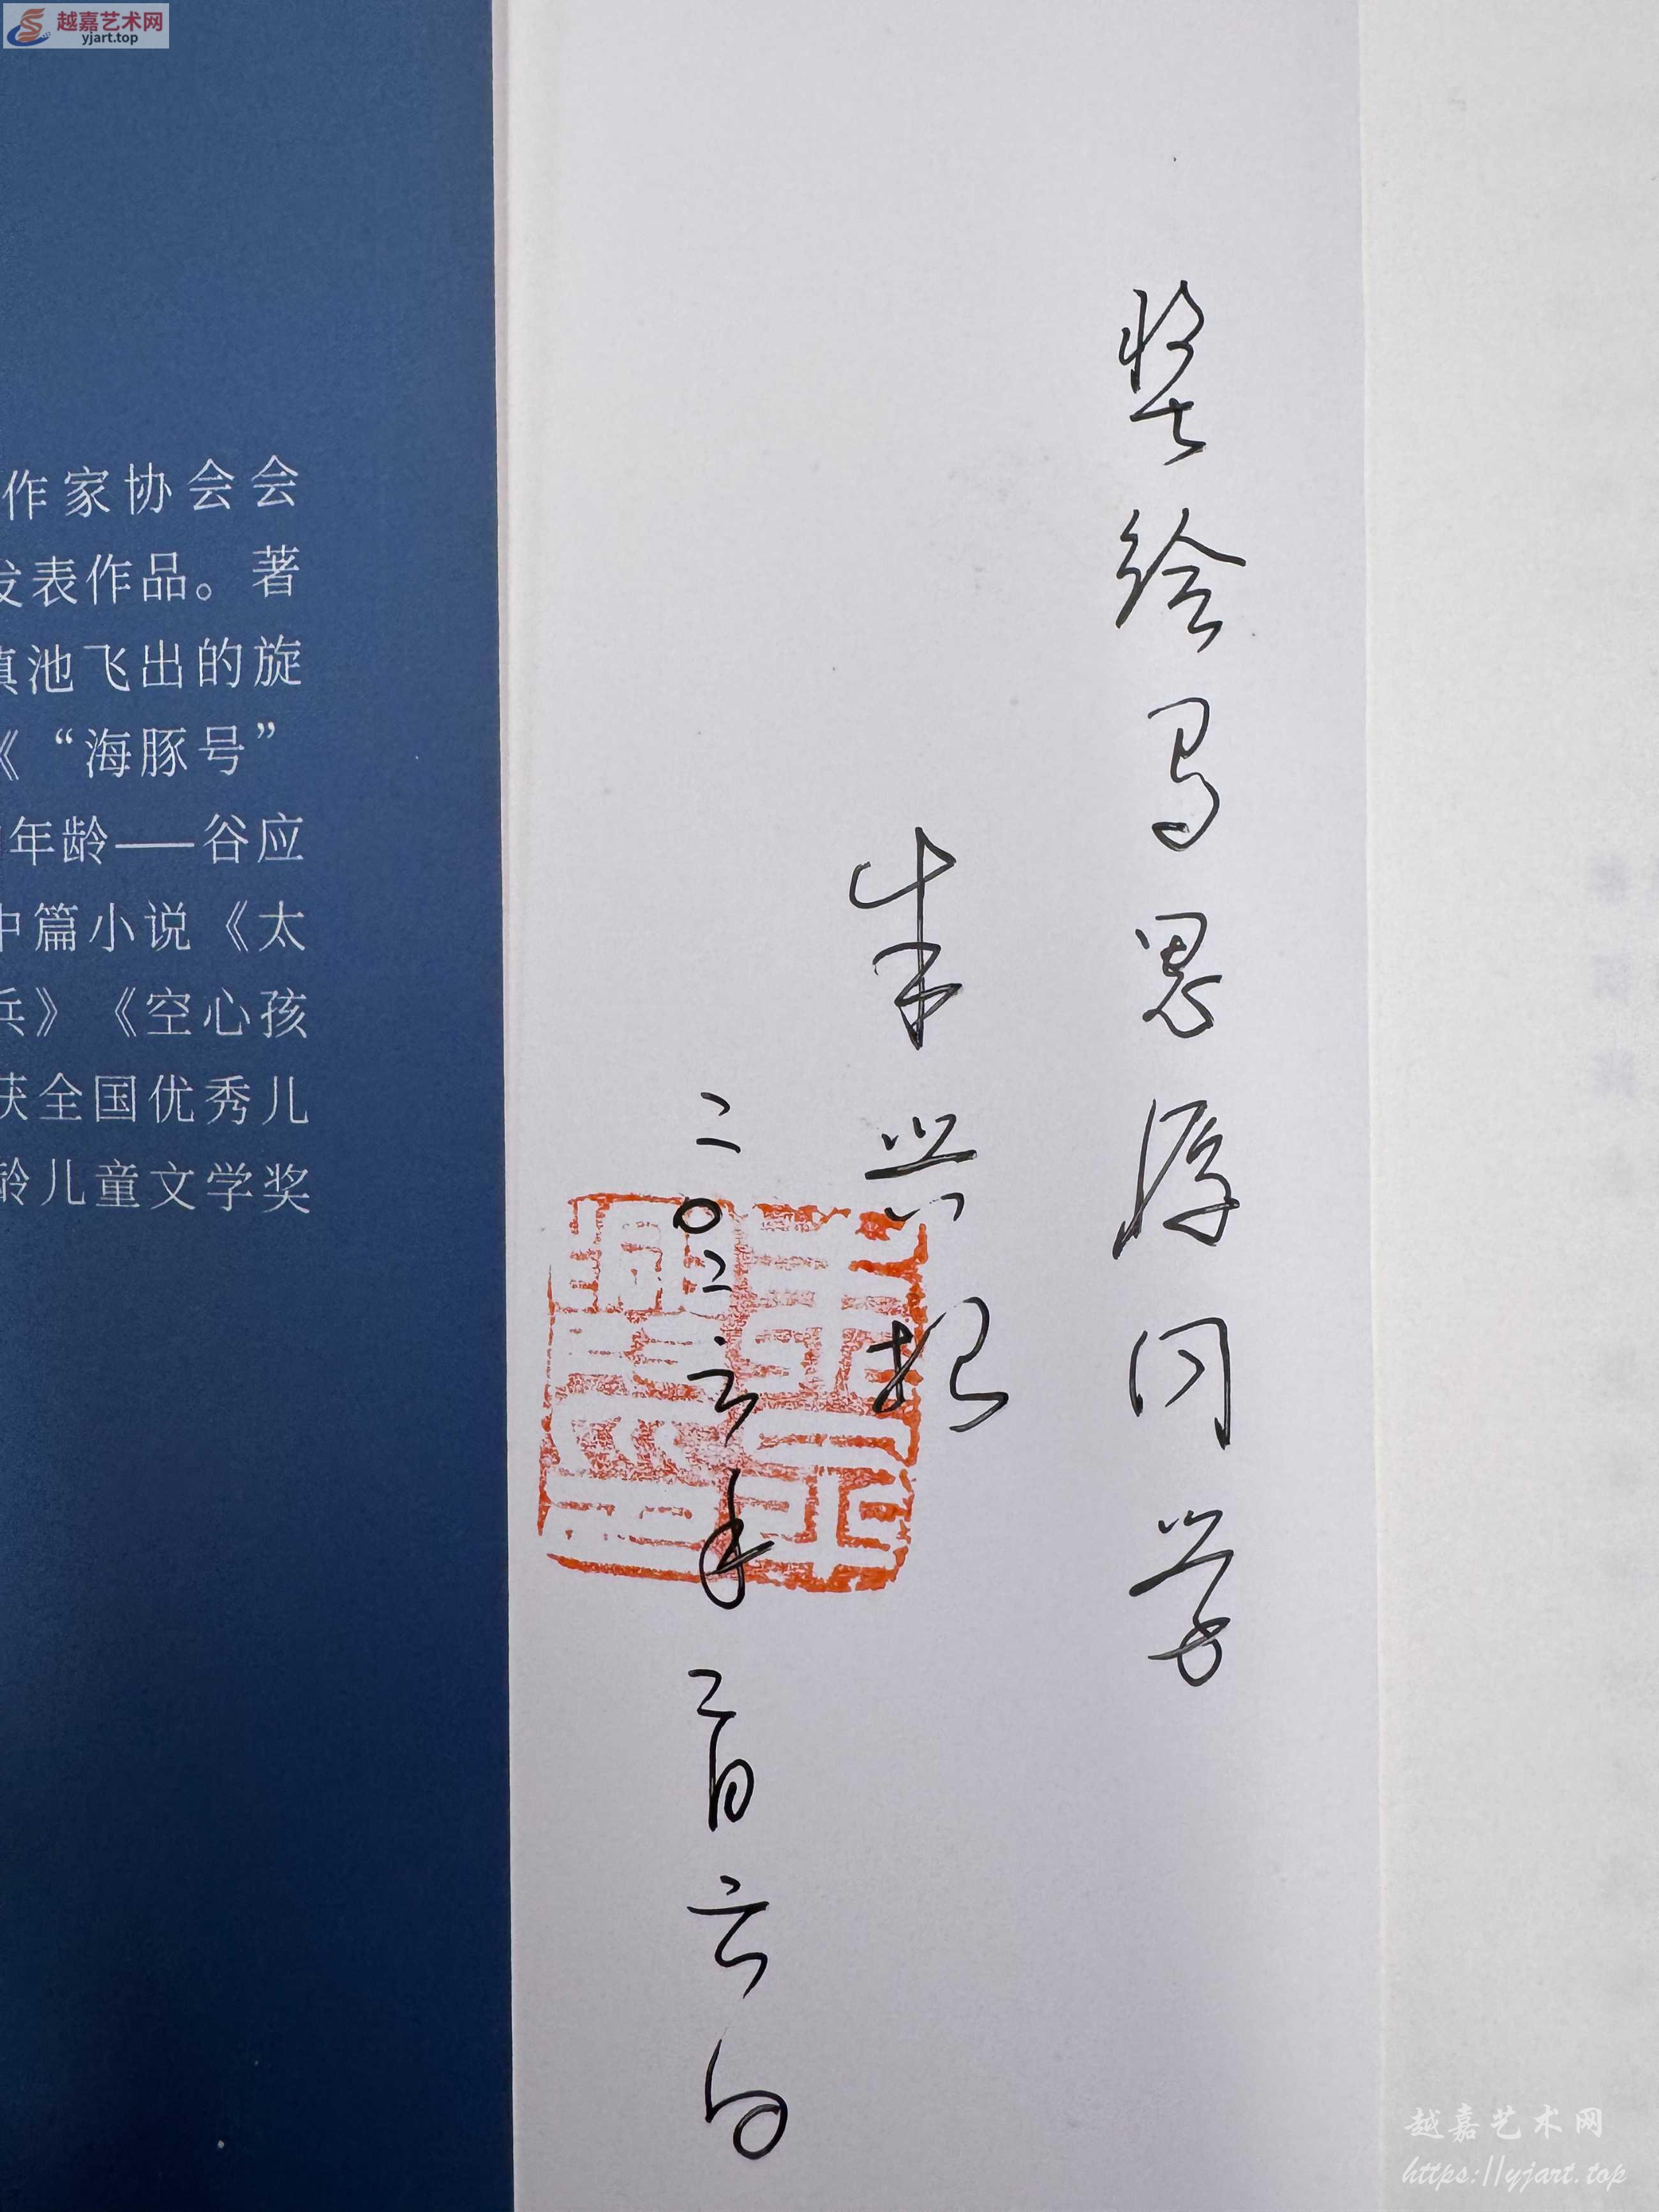 越嘉艺术网
yjart.top
作家协会会
发表作品。著
滇池飞出的旋
《“海豚号”
年龄——谷应
中篇小说《太
兵》《空心孩
获全国优秀儿
龄儿童文学奖
奖给马思源同学
朱兴根
二〇二六年二月六日
越嘉艺术网
https://yjart.top